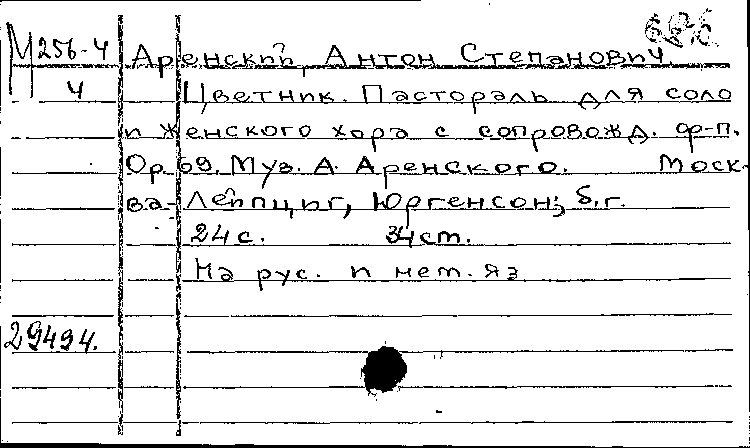 М 256-4 Аренский, Антон Степанович.
4 Цветник. Пастораль для соло
и женского хора с сопровожд. ф-п.
Ор. 69. Муз. А. Аренского. Моск-
ва-Лейпциг, Юргенсон, б.г.
24 с. 34 см.
На рус. и нем. яз
29494.